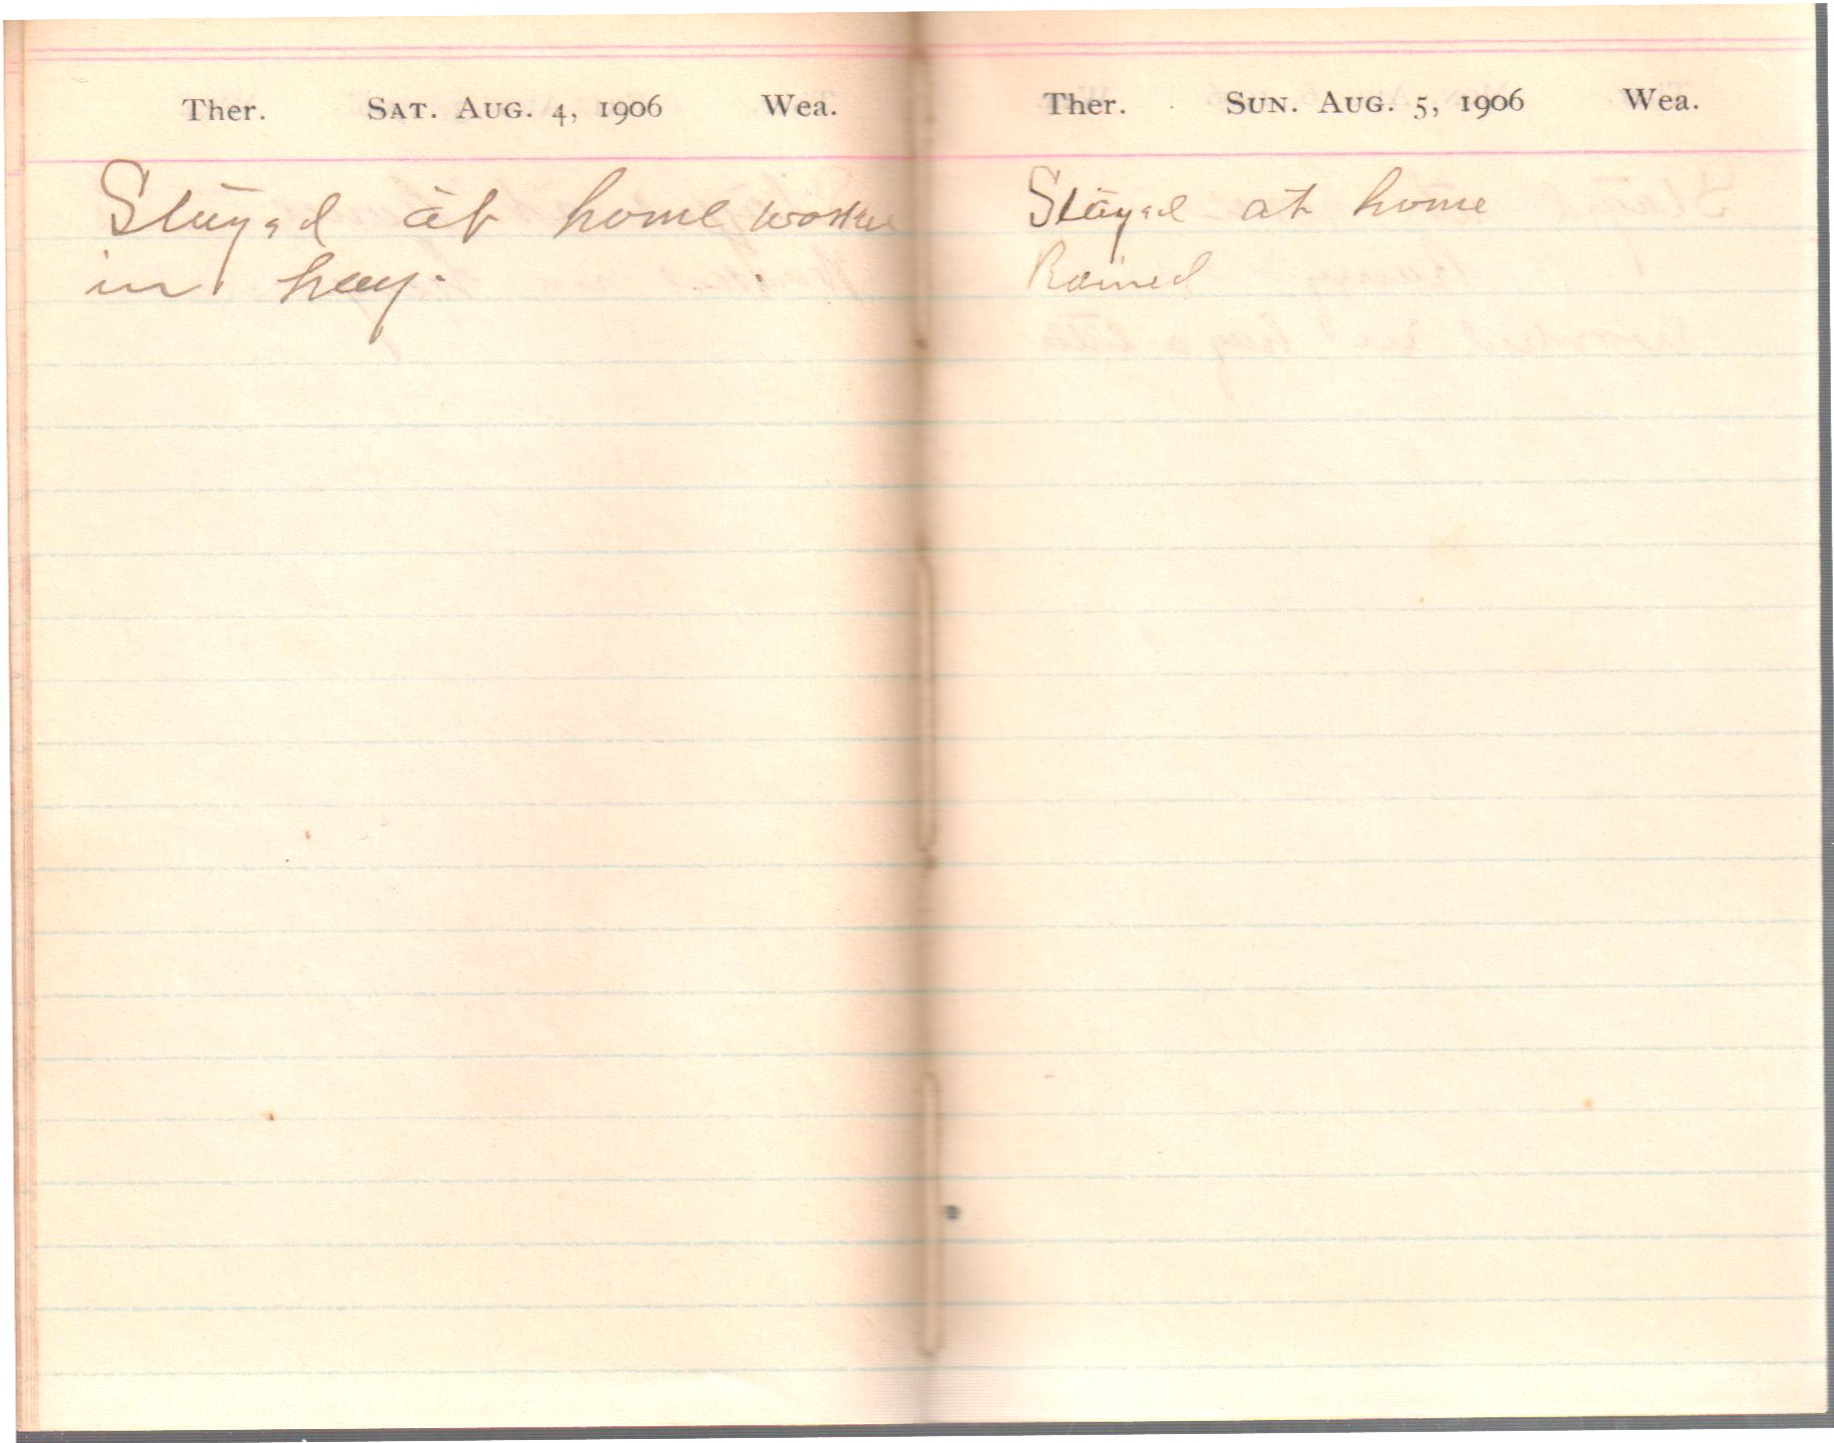 Ther. SAT. AUG. 4, 1906 Wea.
Stayed at home worked
in hay.
Ther. SUN. AUG. 5, 1906 Wea.
Stayed at home
Rained